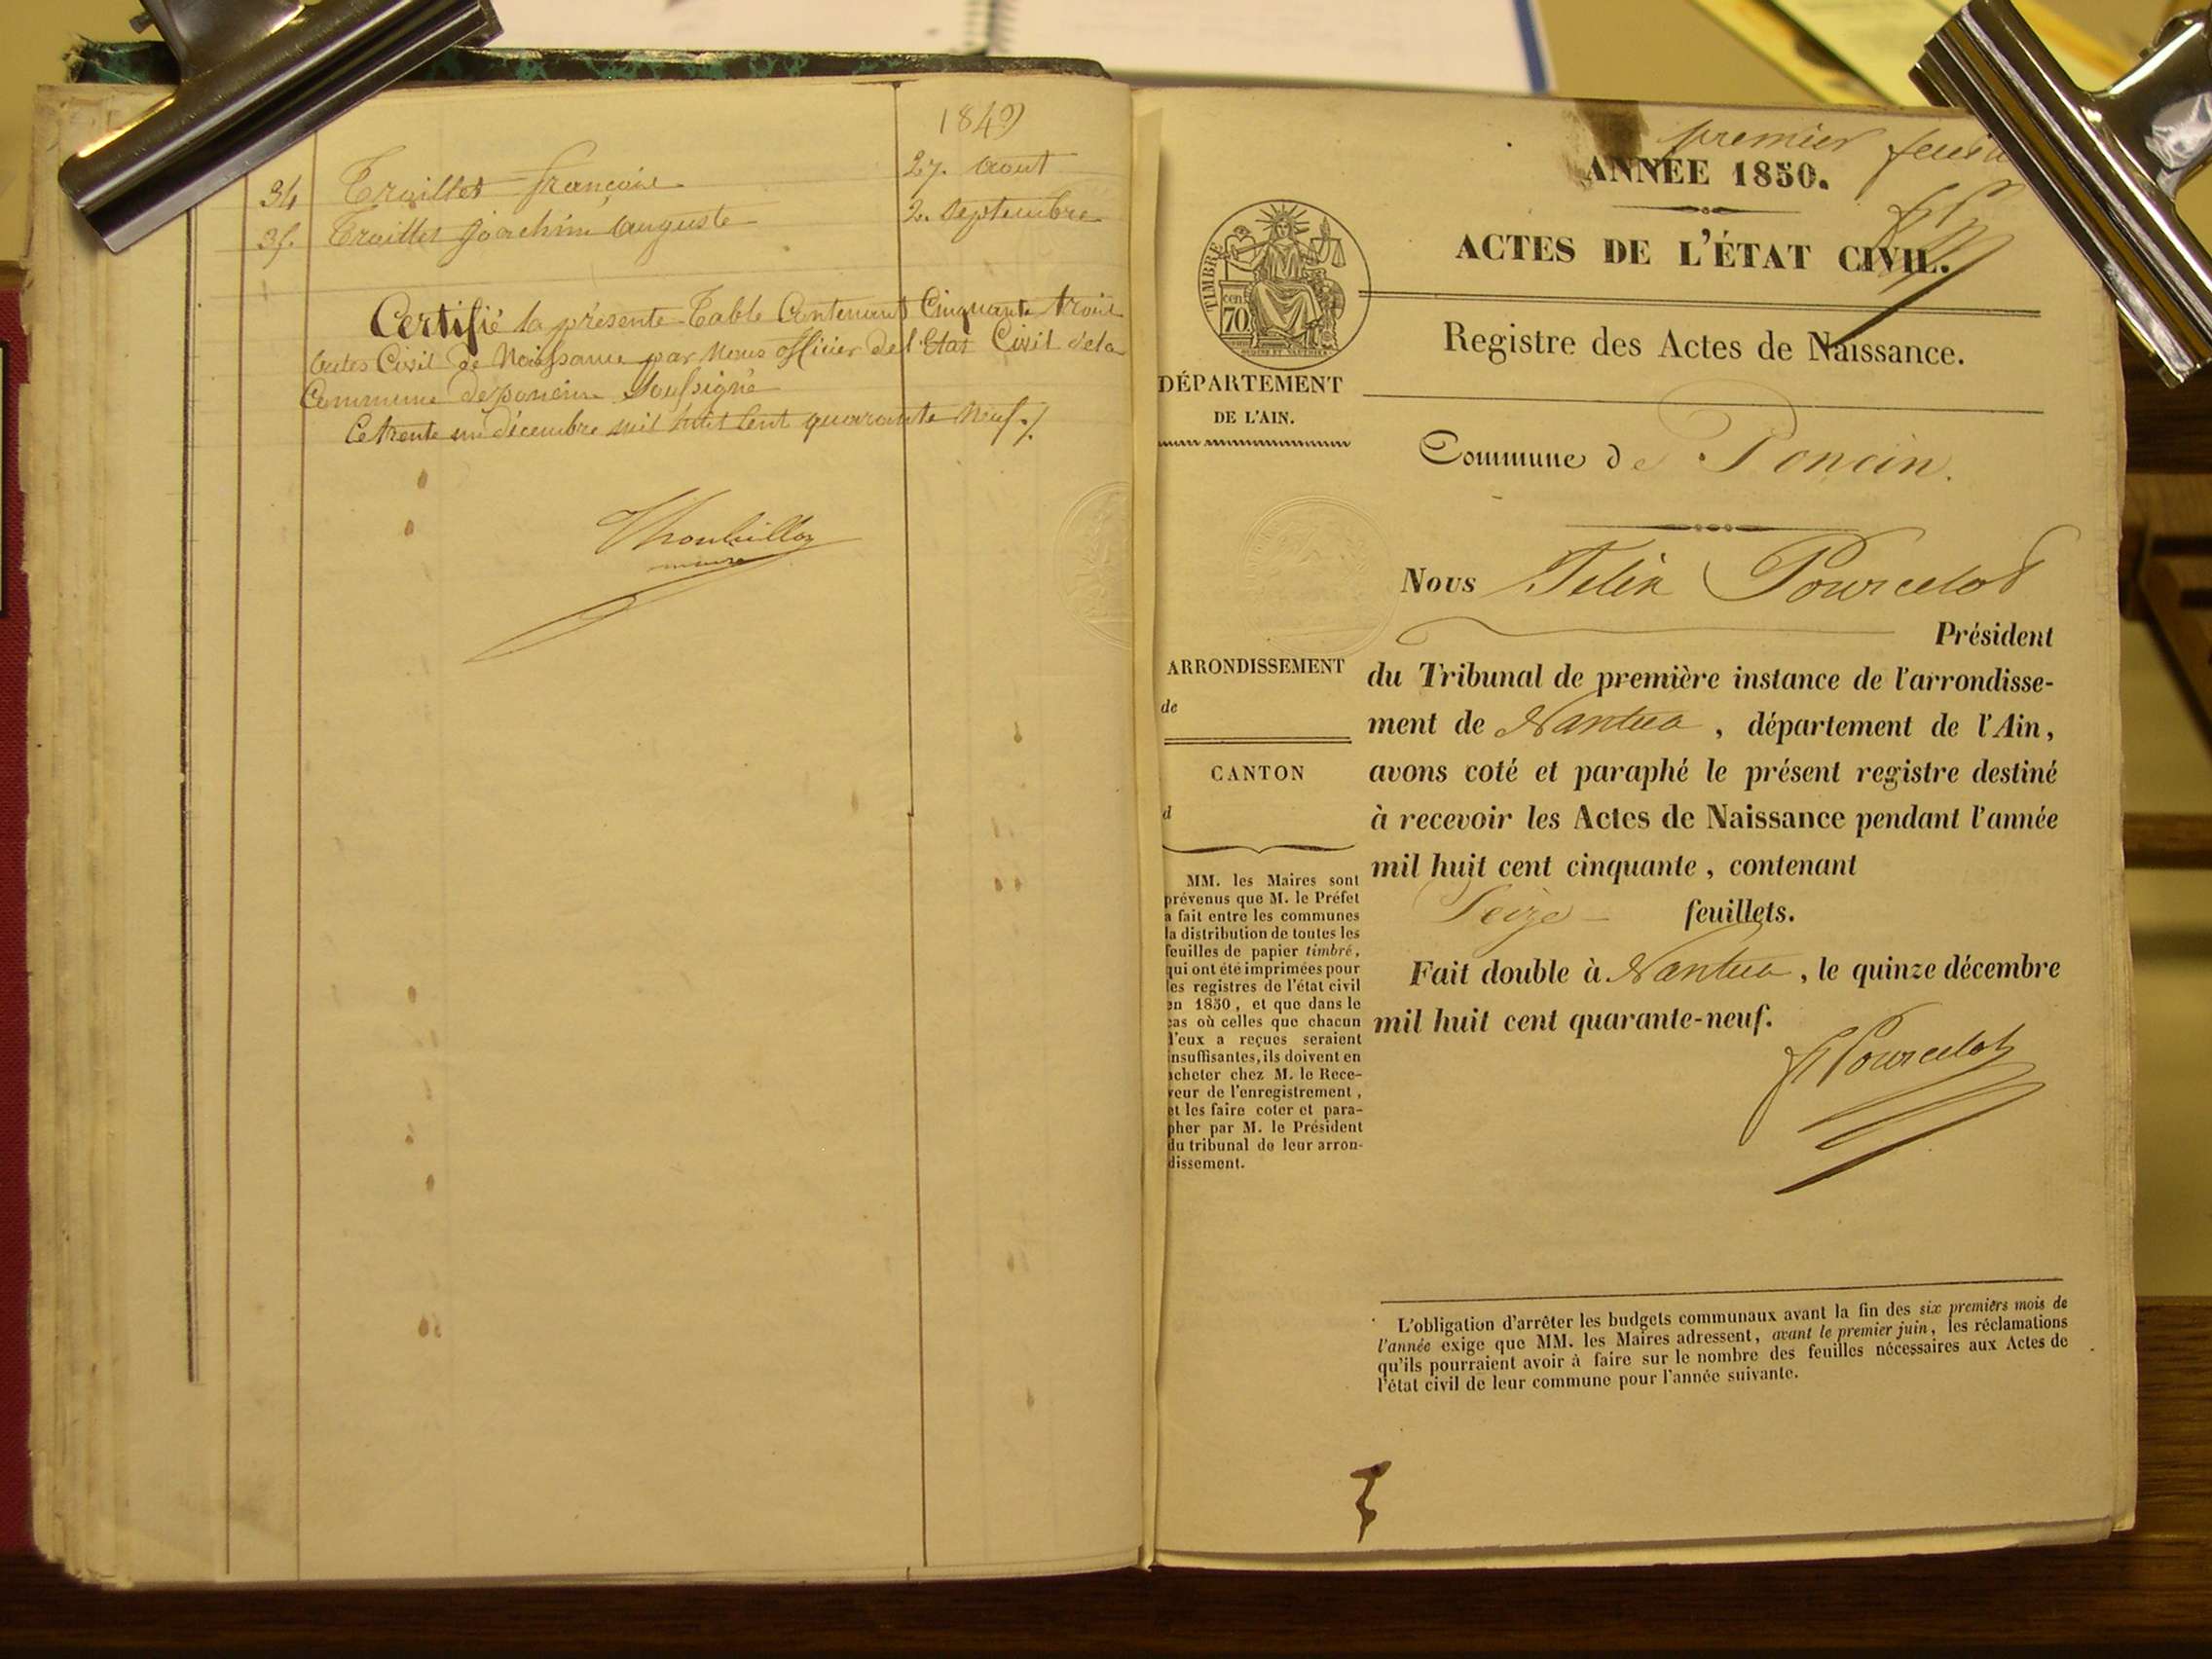 1849
34 Traillet françoise 27. Aout
35. Traillet Joachim Auguste 2. Septembre
Certifié la présente Table Contenant Cinquante trois
Actes Civil de Naissance par Nous officier de l'Etat Civil de la
Commune de poncin Soussigné
Ce trente un décembre mil huit Cent quarante Neuf ./.
maire
premier feuillet
ANNÉE 1850.
ACTES DE L'ÉTAT CIVIL.
TIMBRE
cen
70
Registre des Actes de Naissance.
DÉPARTEMENT
DE L'AIN.
Commune de Poncin.
Nous Félix Pourcelot
Président
ARRONDISSEMENT
de
CANTON
d
du Tribunal de première instance de l'arrondisse-
ment de Nantua, département de l'Ain,
avons coté et paraphé le présent registre destiné
à recevoir les Actes de Naissance pendant l'année
mil huit cent cinquante, contenant
Seize feuillets.
Fait double à Nantua, le quinze décembre
mil huit cent quarante-neuf.
Pourcelot
MM. les Maires sont
prévenus que M. le Préfet
a fait entre les communes
la distribution de toutes les
feuilles de papier timbré,
qui ont été imprimées pour
les registres de l'état civil
en 1850, et que dans le
cas où celles que chacun
d'eux a reçues seraient
insuffisantes, ils doivent en
acheter chez M. le Rece-
veur de l'enregistrement,
et les faire coter et para-
pher par M. le Président
du tribunal de leur arron-
dissement.
L'obligation d'arrêter les budgets communaux avant la fin des six premiers mois de
l'année exige que MM. les Maires adressent, avant le premier juin, les réclamations
qu'ils pourraient avoir à faire sur le nombre des feuilles nécessaires aux Actes de
l'état civil de leur commune pour l'année suivante.